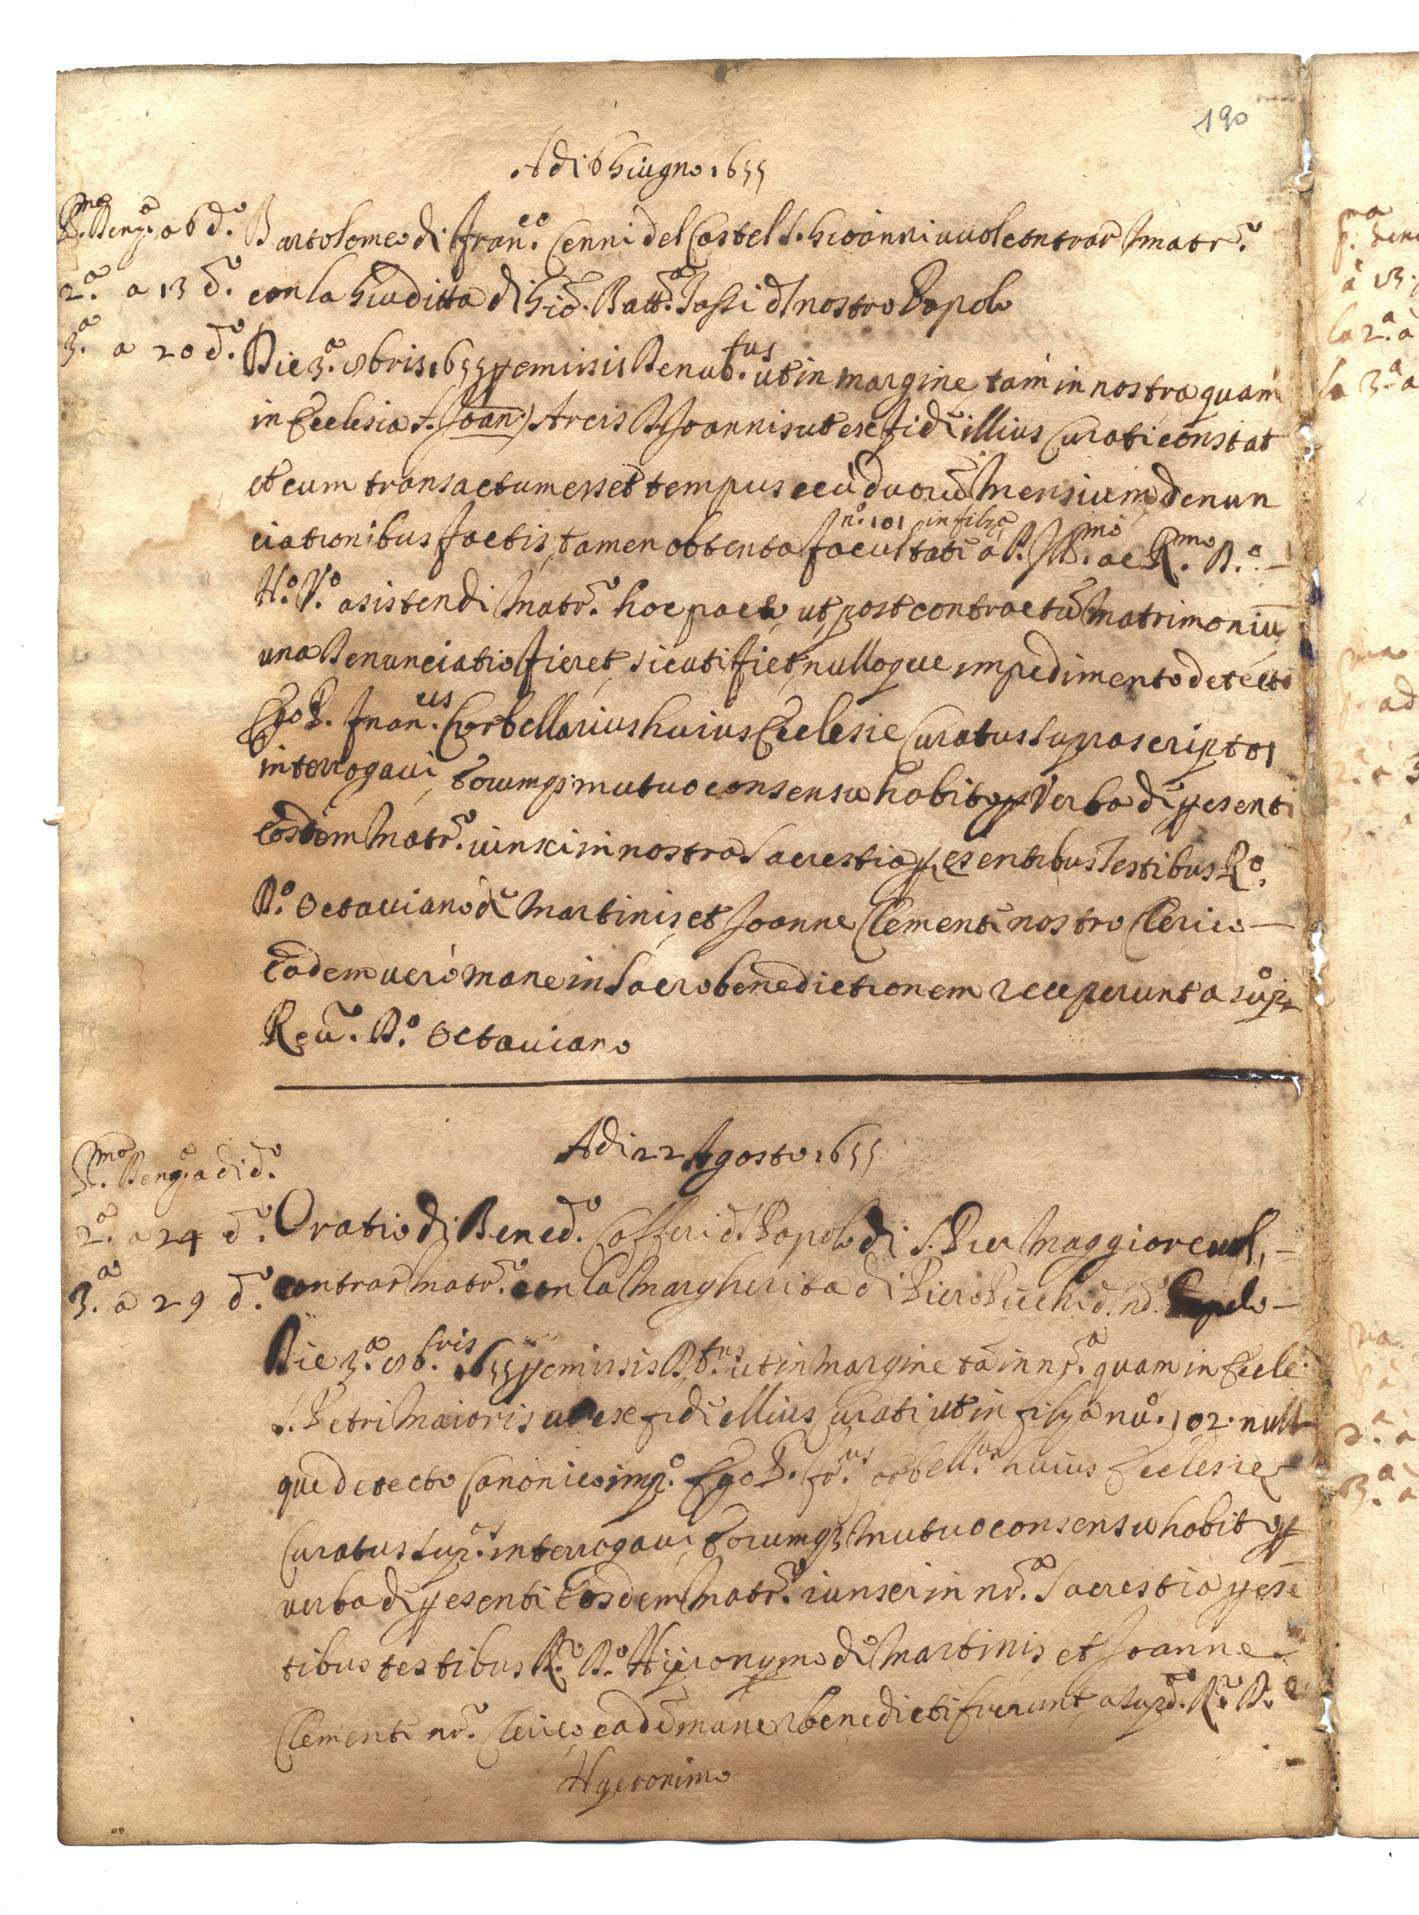 190
Adi 6 Giugno 1655
P.mo Deng.a a 6 d.o
2.a a 13 d.o
3.a a 20 d.o
Bartolomeo di Fran.co Cenni del Castel S. Giovanni vuol contrar Matr.o
con la Giuditta di Gio. Batt.a Tassi d nostro Popolo
Die 3.a 8bris 1655 premissis Denub.tus ut in margine tam in nostra quam
in Ecclesia S. Joan: Arcis S. Joannis ut ex fide illius Curati constat
et cum transactum esset tempus duorū Mensium denun
ciationibus factis, tamen obtenta facultate a P. Ill.mo ac R.mo D.o
n.o 101 in filza
H.o V.o asistendi Matr.o hoc pacto, ut post contractū Matrimoniū
una Denunciatio fieret, sicuti fiet, nulloque impedimento detecto
Ego P. Fran.cus Corbellarius huius Ecclesie Curatus supra scriptos
interrogavi, eorumq; mutuo consensu habito p Verba de pesenti
eosdem Matr.o iunxi in nostra Sacrestia pesentibus Testibus R.o
D.o Octaviano de Martinis, et Joanne Clemente nostro Clerico
Eadem vero mane in Sacro benedictionem receperunt a sup.o
Reu.o D.o Octaviano
Adi 22 Agosto 1655
P.mo Deng.a a di d.o
2.a a 24 d.o
3.a a 29 d.o
Oratio di Bened.o Cofferi d. Popolo di S. Pier Maggiore vuol,
contrar matr.o con la Margherita di Piero d. n.o Popolo
Die 3.a 8bris 1655 premissis D.tus ut in margine tā in nr.a quam in Eccle.
S. Petri Maioris ut ex fide illius Curati ut in filza nū. 102. null
que detecto Canonico imp.o Ego P. Fr.cus Corbell.us huius Ecclesie
Curatus sup.os interrogavi, eorumq; mutuo consensu habito p
verba de pesenti eosdem Matr.o iunxi in nr.a Sacrestia pesē
tibus testibus R.o D.o Hieronymo de Martinis, et Joanne
Clemente nr.o Clerico eadē mane benedicti fuerunt a sup.d.o R.o D.o
Hyeronimo